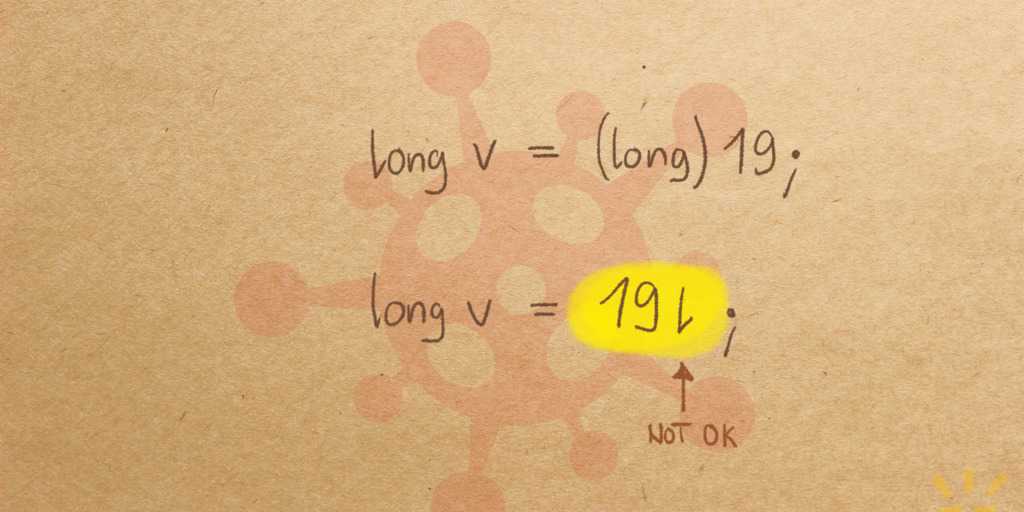 long v = (long) 19;
long v = 19l;
NOT OK